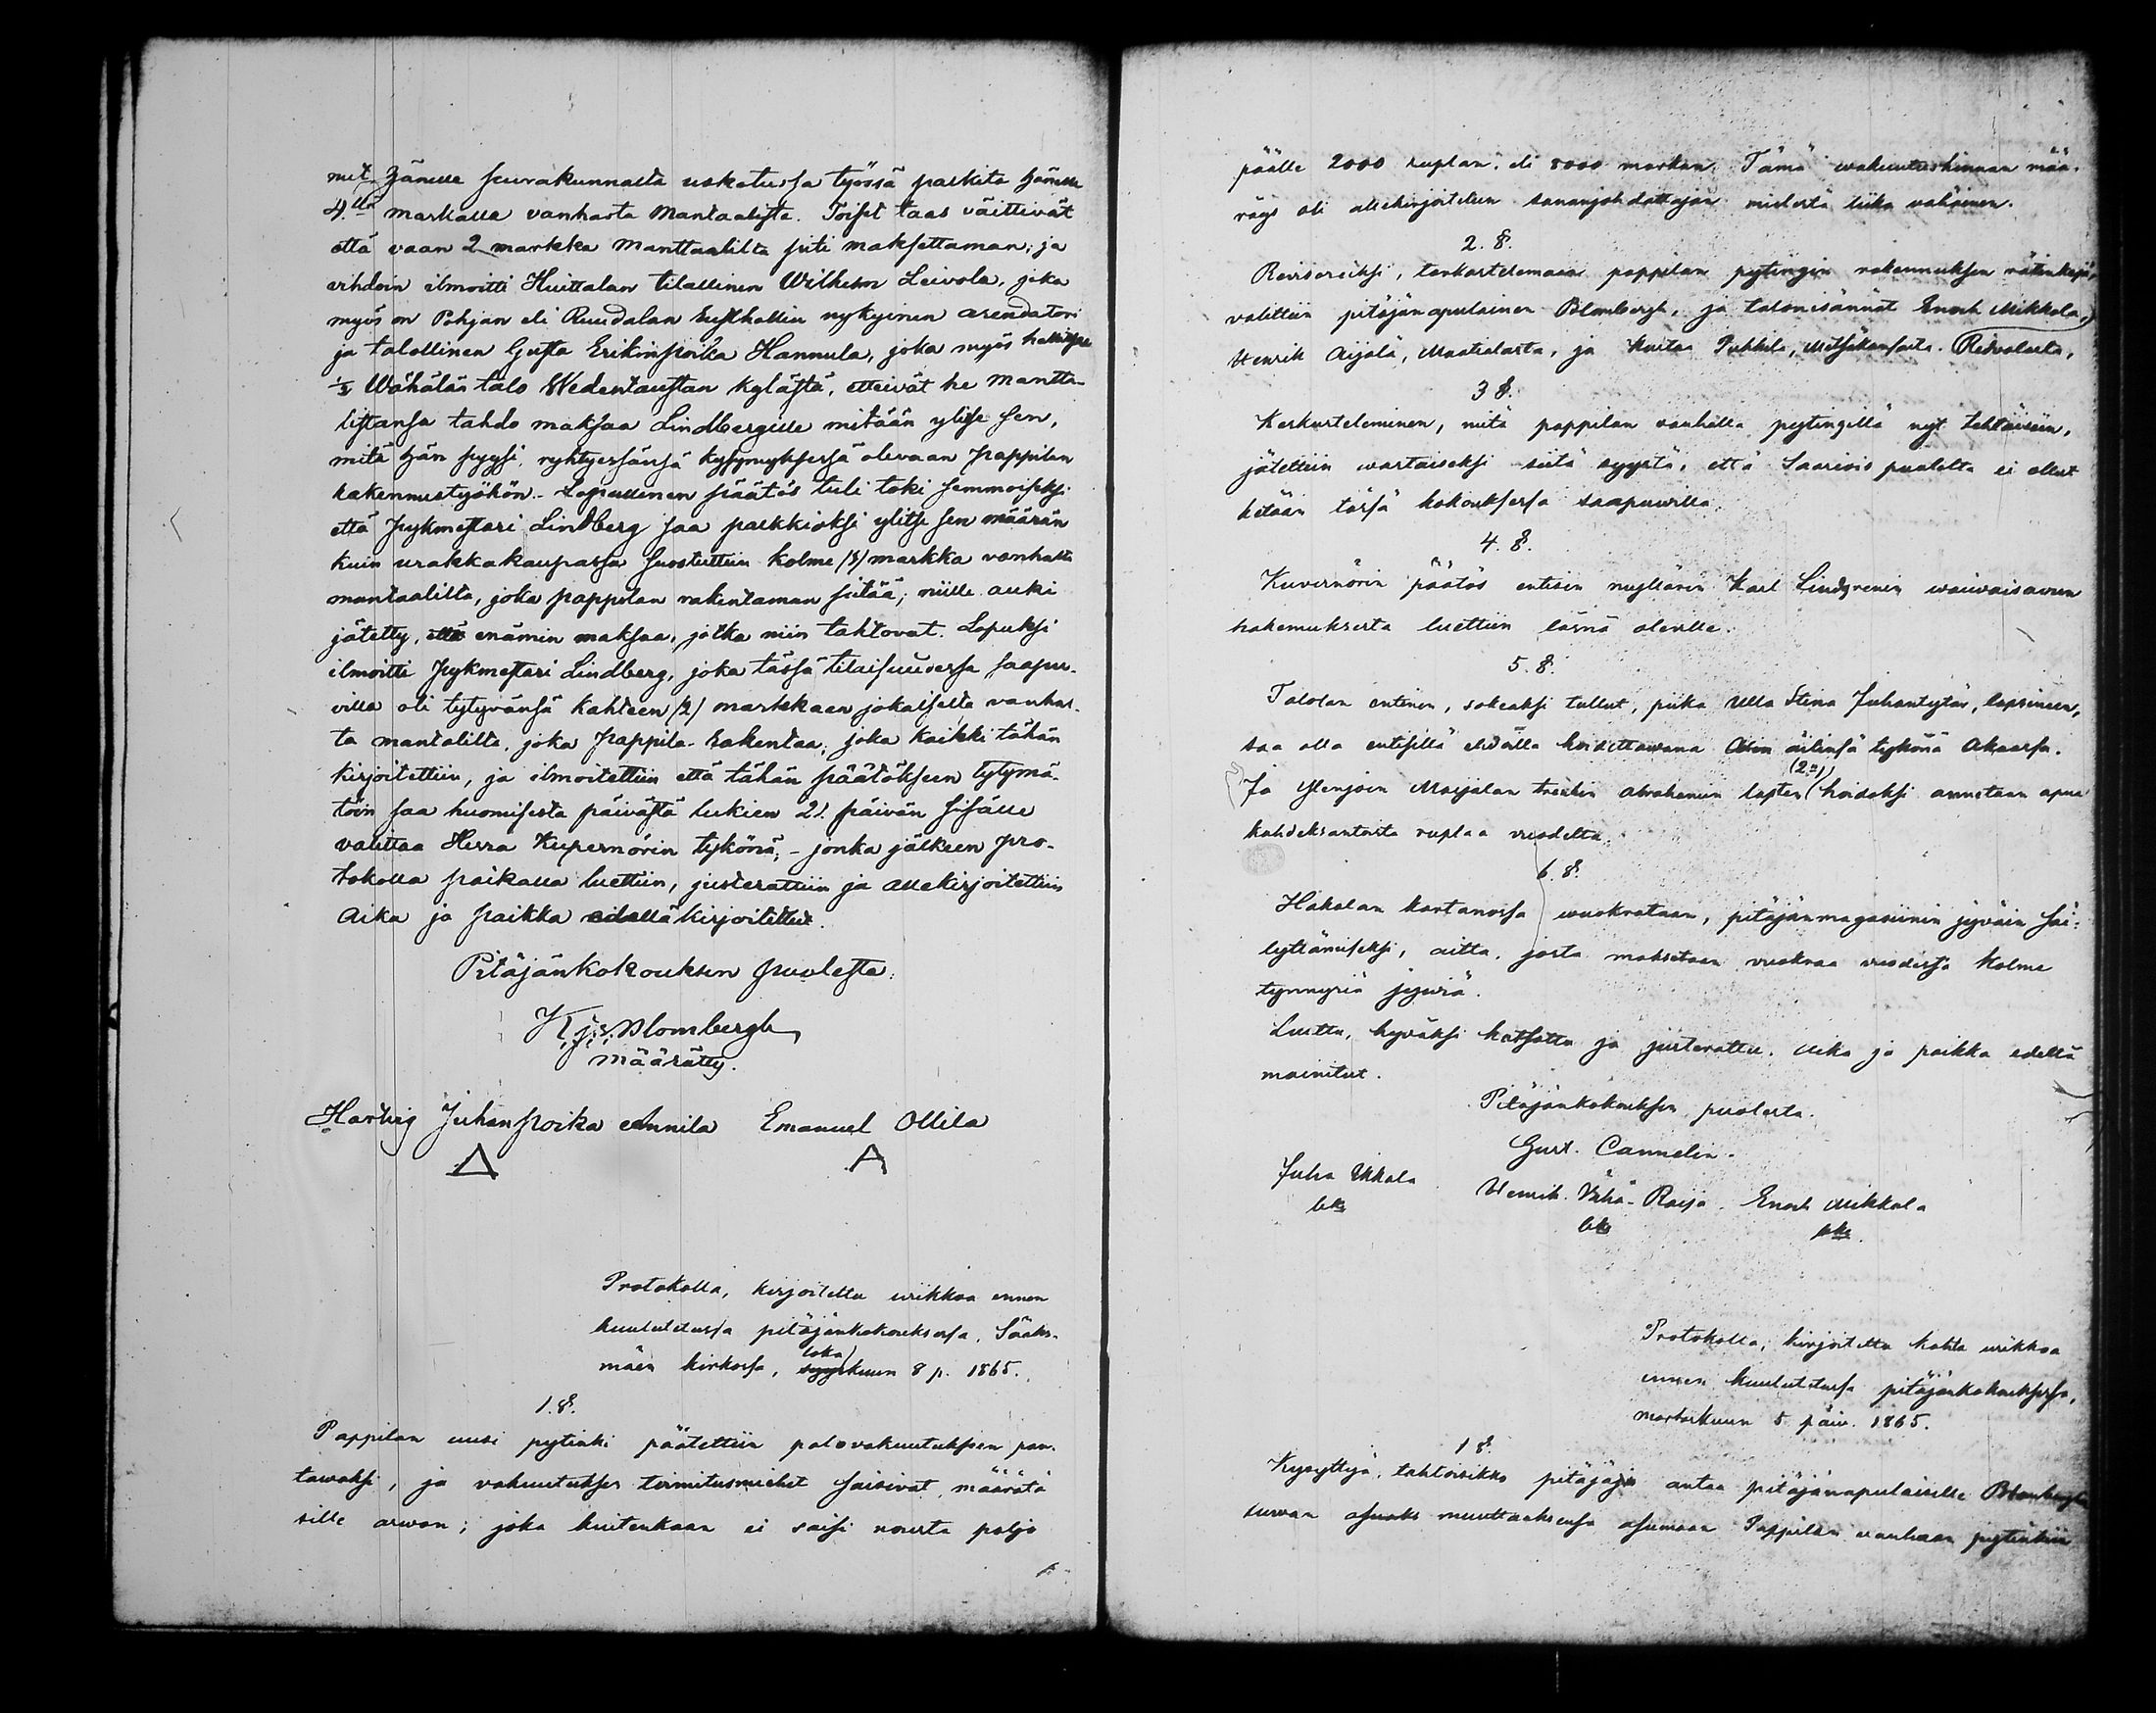 mit. hänelle seurakunnalta uskotussa työssä palkita hänelle
4llä markalla vanhasta Mantaalista. Toiset taas väittivät
että vaan 2 markka Manttaalilta piti maksettaman; ja
vihdoin ilmoitti Huittalan tilallinen Wilhelm Leivola, joka
myös on Pohjan eli Ruudalan Rusthollin nykyinen arendatori
ja talollinen Gusta Erikinpoika Hannula, joka myös hallitsee
Wähälän talo Wedentaustan kylästä, etteivät he Mantta-
listansa tahdo maksaa Lindbergille mitään ylitse sen,
mitä hän pyysi, ryhtyessänsä kysymyksessä olevaan pappilan
rakennustyöhön. Lopullinen päätös tuli toki semmoiseksi
että Pykmestari Lindberg saa palkkioksi ylitse sen määrän
kuin urakkakaupassa suostuttiin kolme /3/ markka vanhalta
mantaalilta, joka pappilan rakentaman pitää; niille auki
jätetty, että enämin maksaa, jotka niin tahtovat. Lopuksi
ilmoitti Pykmestari Lindberg, joka tässä tilaisuudessa saapu-
villa oli tytyvänsä kahteen /2/ markkaan jokaiselta vanhal-
ta mantalilta, joka Pappila rakentaa; joka kaikki tähän
kirjoitettiin, ja ilmoitettiin että tähän päätökseen tytymä-
töin saa huomisesta päivästä lukien 21 päivän sisälle
valittaa Herra Kupernörin tykönä; - jonka jälkeen pro-
tokolla paikalla luettiin, justerattiin ja allekirjoitettiin
Aika ja paikka edelläkirjoitettu.
Pitäjänkokouksen puolesta:
K. J. Blombergh
määrätty.
Hartvig Juhanpoika Annila Emanuel Ollila
Protokolla, kirjoitettu wiikkoa ennen
kuulutetussa pitäjänkokouksessa, Sääks-
loka
mäen kirkossa, syyskuun 8 p. 1865.
1. §.
Pappilan uusi pytinki päätettiin palovakuutuksen pan-
tawaksi, ja vakuutuksen toimitusmiehet saisivat määrätä
sille arwon; joka kuitenkaan ei saisi nousta paljo
päälle 2000 ruplan, eli 8000 markan. Tämä wakuutushinnan mää-
räys oli allekirjoitetun sananjohdattajan mielestä liika vähäinen.
2. §.
Reisoreiksi, tarkastelemaan pappilan pytingin rakennuksen räkinkejä,
valittiin pitäjänapulainen Blombergh, ja talonisännät Enoch Mikkola,
Henrik Äijälä, Maatialasta, ja Kustaa Pukkila, Metsäkansasta. Ritvalasta,
3 §.
Keskusteleminen, mitä pappilan vanhalla pytingillä nyt tehtäisiin,
jätettiin wastaiseksi siitä syystä, että Saarisis puolelta ei ollut
ketään tässä kokouksessa saapuwilla.
4. §.
Kuvernörin päätös entisen myllärin Karl Lindgrenin waiwaisawun
hakemuksesta luettiin läsnä oleville.
5. §.
Talolan entinen, sokeaksi tullut, piika Ulla Stina Juhantytär, lapsineen,
saa olla entisillä ehdoilla hoidettawana äitinsä tykönä Akaassa.
(2:n)
Ja Ylenjoen Marjalan trenkin Abrahamin lasten hoidoksi annetaan apua
kahdeksantoista ruplaa vuodelta.
6. §.
Hakalan kartanossa wuokrataan, pitäjänmagasiinin jyväin säi-
lyttämiseksi, aitta, josta maksetaan vuokraa vuodessa kolme
tynnyriä jywiä.
Luettu, hyväksi katsottu ja justerattu. Aika ja paikka edellä
mainitut.
Pitäjänkokouksen puolesta.
Gust. Cannelin.
Juha Ukkola Henrik Vähä-Raisa. Enoch Mikkola
Protokolla, kirjoitettu kahta wiikkoa
ennen kuulutetussa pitäjänkokouksessa,
marraskuun 5 päiv. 1865.
1 §.
Kysyttyä, tahtoisikko pitäjäjä antaa pitäjänapulaiselle Blombergh
luwan muuttaaksensa asumaan Pappilan vanhaan pytinkiin